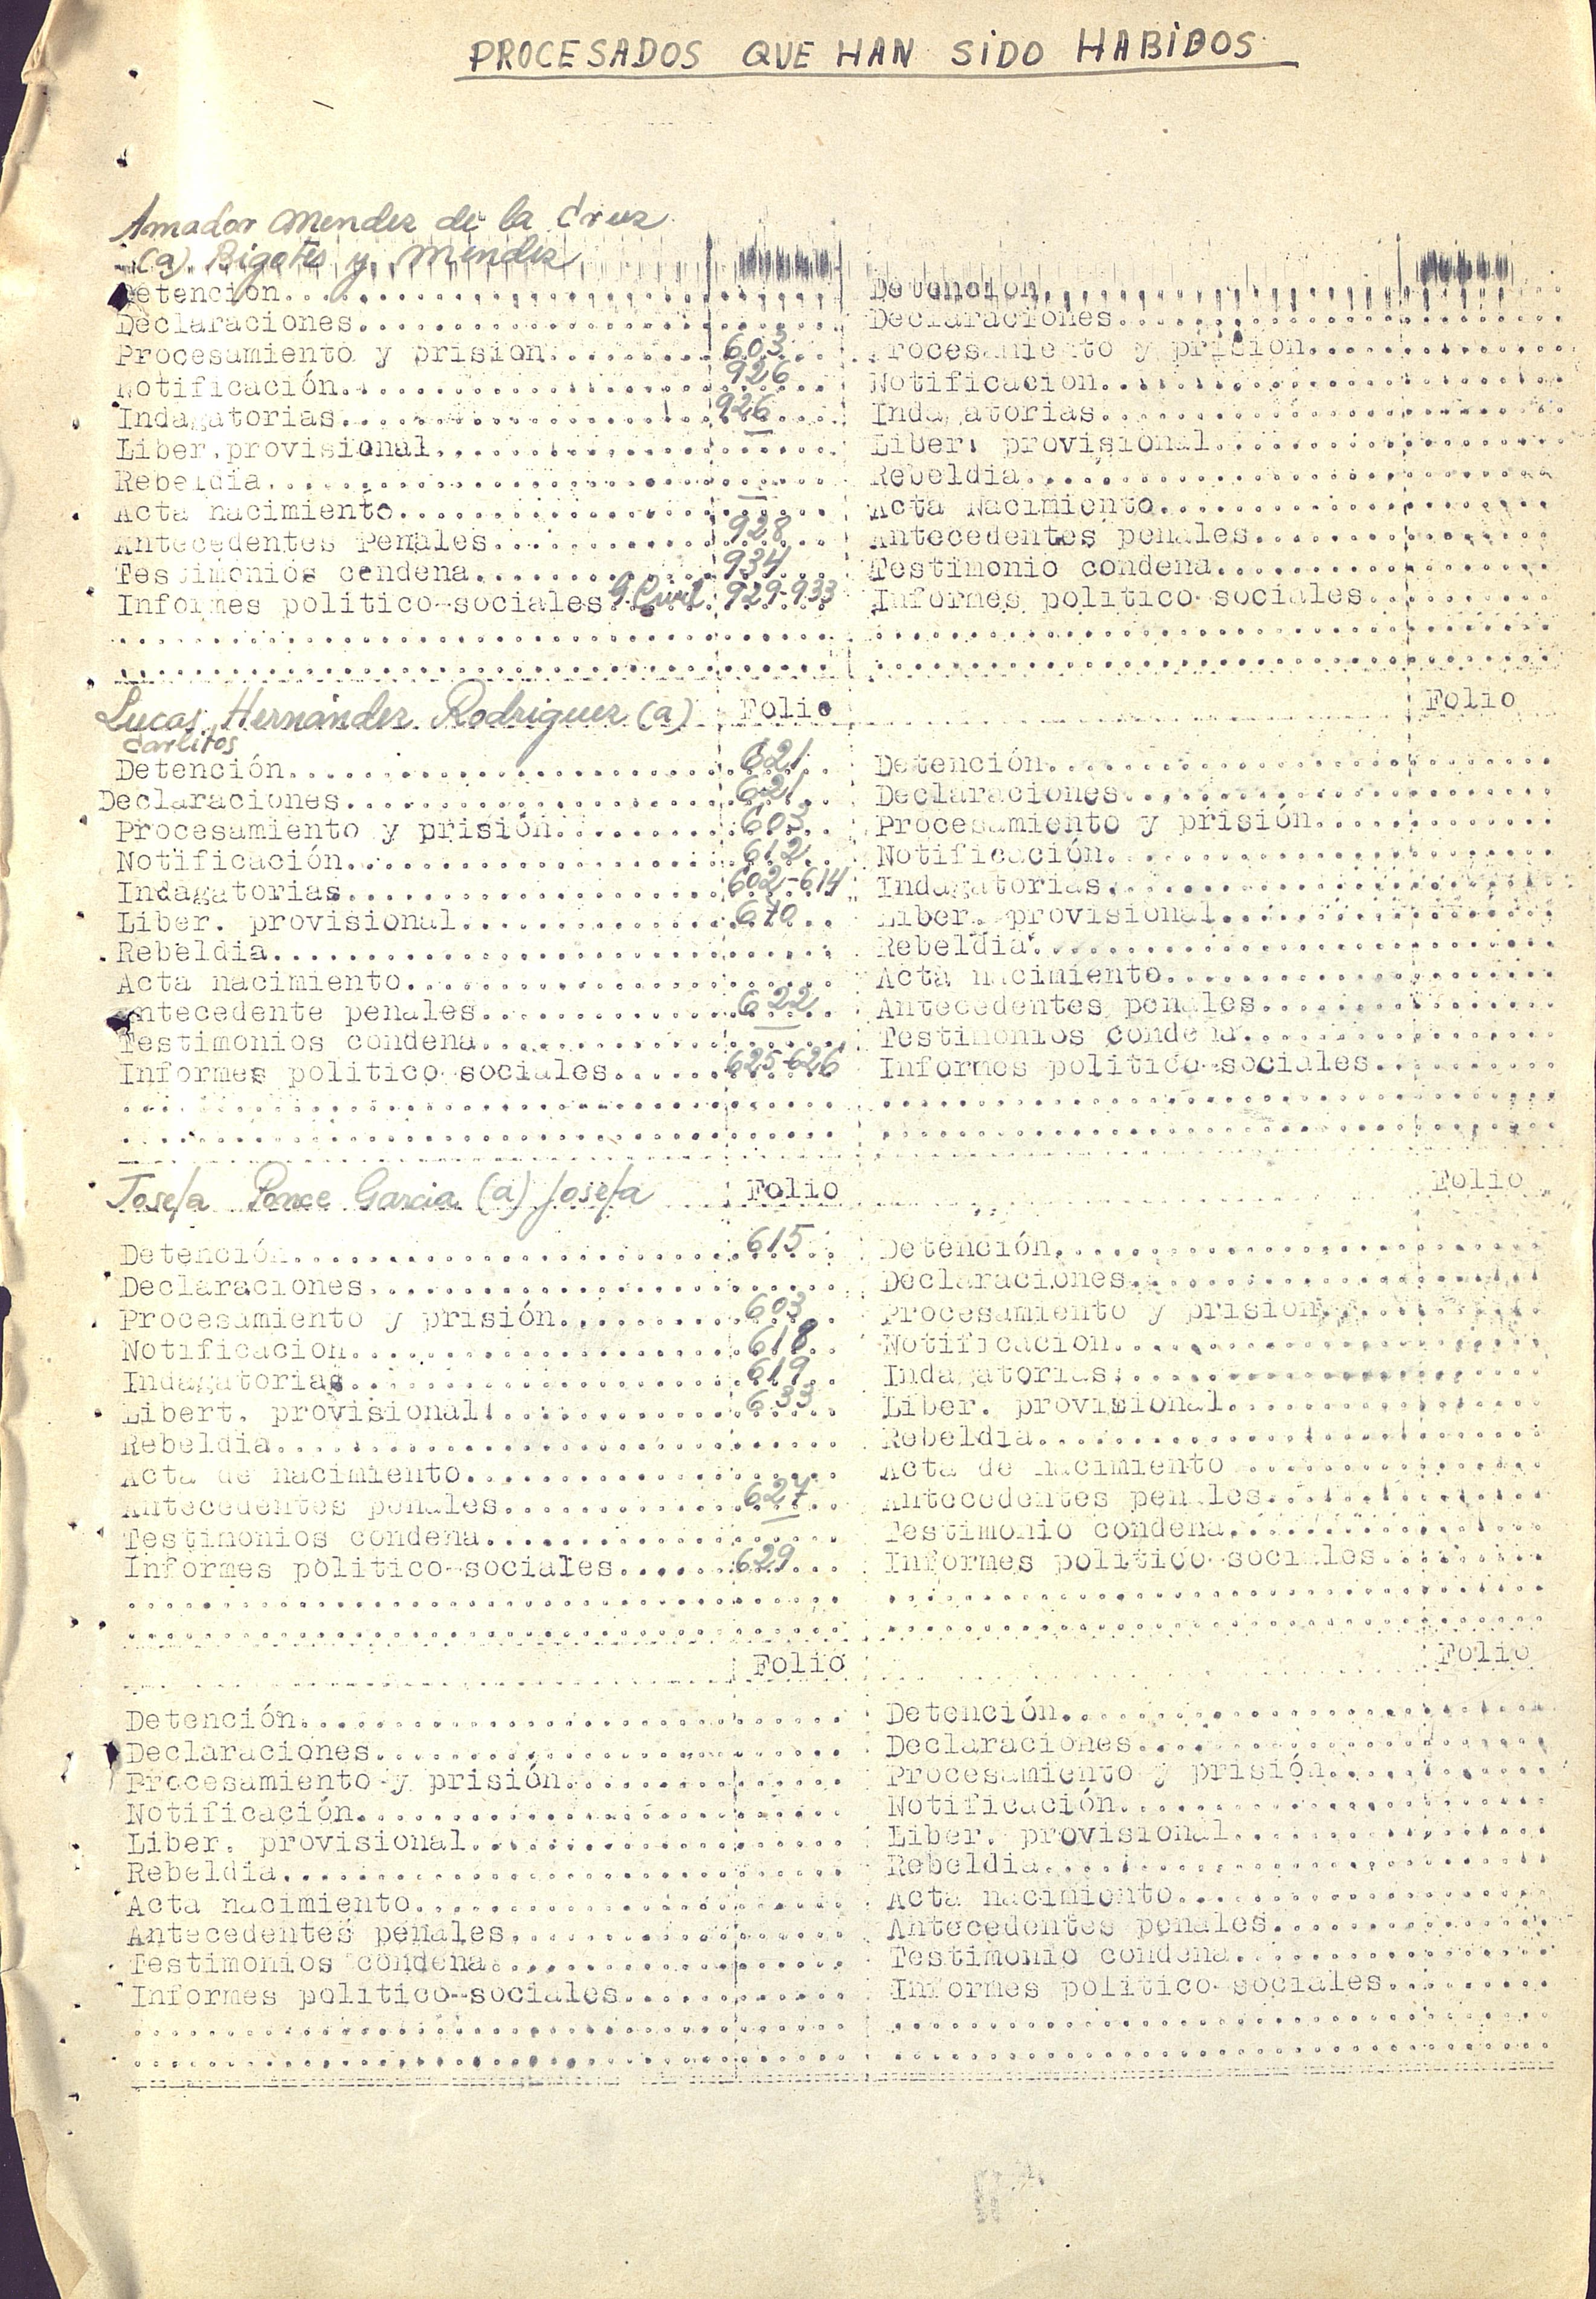 PROCESADOS QUE HAN SIDO HABIDOS
Amador Mendez de la Cruz
(a) Bigotes y Mendez
Detención
Declaraciones
Procesamiento y prisión 603
Notificación 926
Indagatorias 926
Liber. provisional
Rebeldia
Acta nacimiento
Antecedentes Penales 928
Testimonios condena 934
Informes politico-sociales G. Civil 929-933
Lucas Hernández Rodriguez (a) Folio
Carlitos
Detención 621
Declaraciones 621
Procesamiento y prisión 603
Notificación 612
Indagatorias 602-614
Liber. provisional 670
Rebeldia
Acta nacimiento
Antecedente penales 622
Testimonios condena
Informes politico-sociales 625-626
Josefa Ponce Garcia (a) Josefa Folio
Detención 615
Declaraciones
Procesamiento y prisión 603
Notificación 618
Indagatorias 619
Libert. provisional 633
Rebeldia
Acta de nacimiento
Antecedentes penales 627
Testimonios condena
Informes politico-sociales 629
Folio
Detención
Declaraciones
Procesamiento y prisión
Notificación
Liber. provisional
Rebeldia
Acta nacimiento
Antecedentes penales
Testimonios condena
Informes politico-sociales
Detencion
Declaraciones
Procesamiento y prision
Notificacion
Indagatorias
Liber. provisional
Rebeldia
Acta Nacimiento
Antecedentes penales
Testimonio condena
Informes politico-sociales
Folio
Detención
Declaraciones
Procesamiento y prisión
Notificación
Indagatorias
Liber. provisional
Rebeldia
Acta nacimiento
Antecedentes penales
Testimonios condena
Informes politico-sociales
Folio
Detención
Declaraciones
Procesamiento y prision
Notificacion
Indagatorias
Liber. provisional
Rebeldia
Acta de nacimiento
Antecedentes penales
Testimonio condena
Informes politico-sociales
Folio
Detención
Declaraciones
Procesamiento y prisión
Notificación
Liber. provisional
Rebeldia
Acta nacimiento
Antecedentes penales
Testimonio condena
Informes politico-sociales